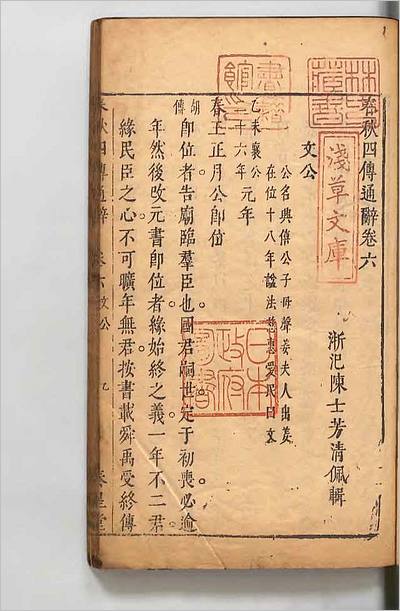 春秋四傳通辭卷六
浙汜陳士芳清佩輯
文公
公名興僖公子母聲姜夫人出姜
在位十八年諡法慈惠愛民曰文
乙未襄公二十六年元年
春王正月公即位
胡傳 即位者告廟臨羣臣也國君嗣世定于初喪必逾
年然後改元書即位者緣始終之義一年不二君
緣民臣之心不可曠年無君按書載舜禹受終傳
春秋四傳通辭 卷六 文公 乙
淺草文庫
日本政府圖書
林氏藏書